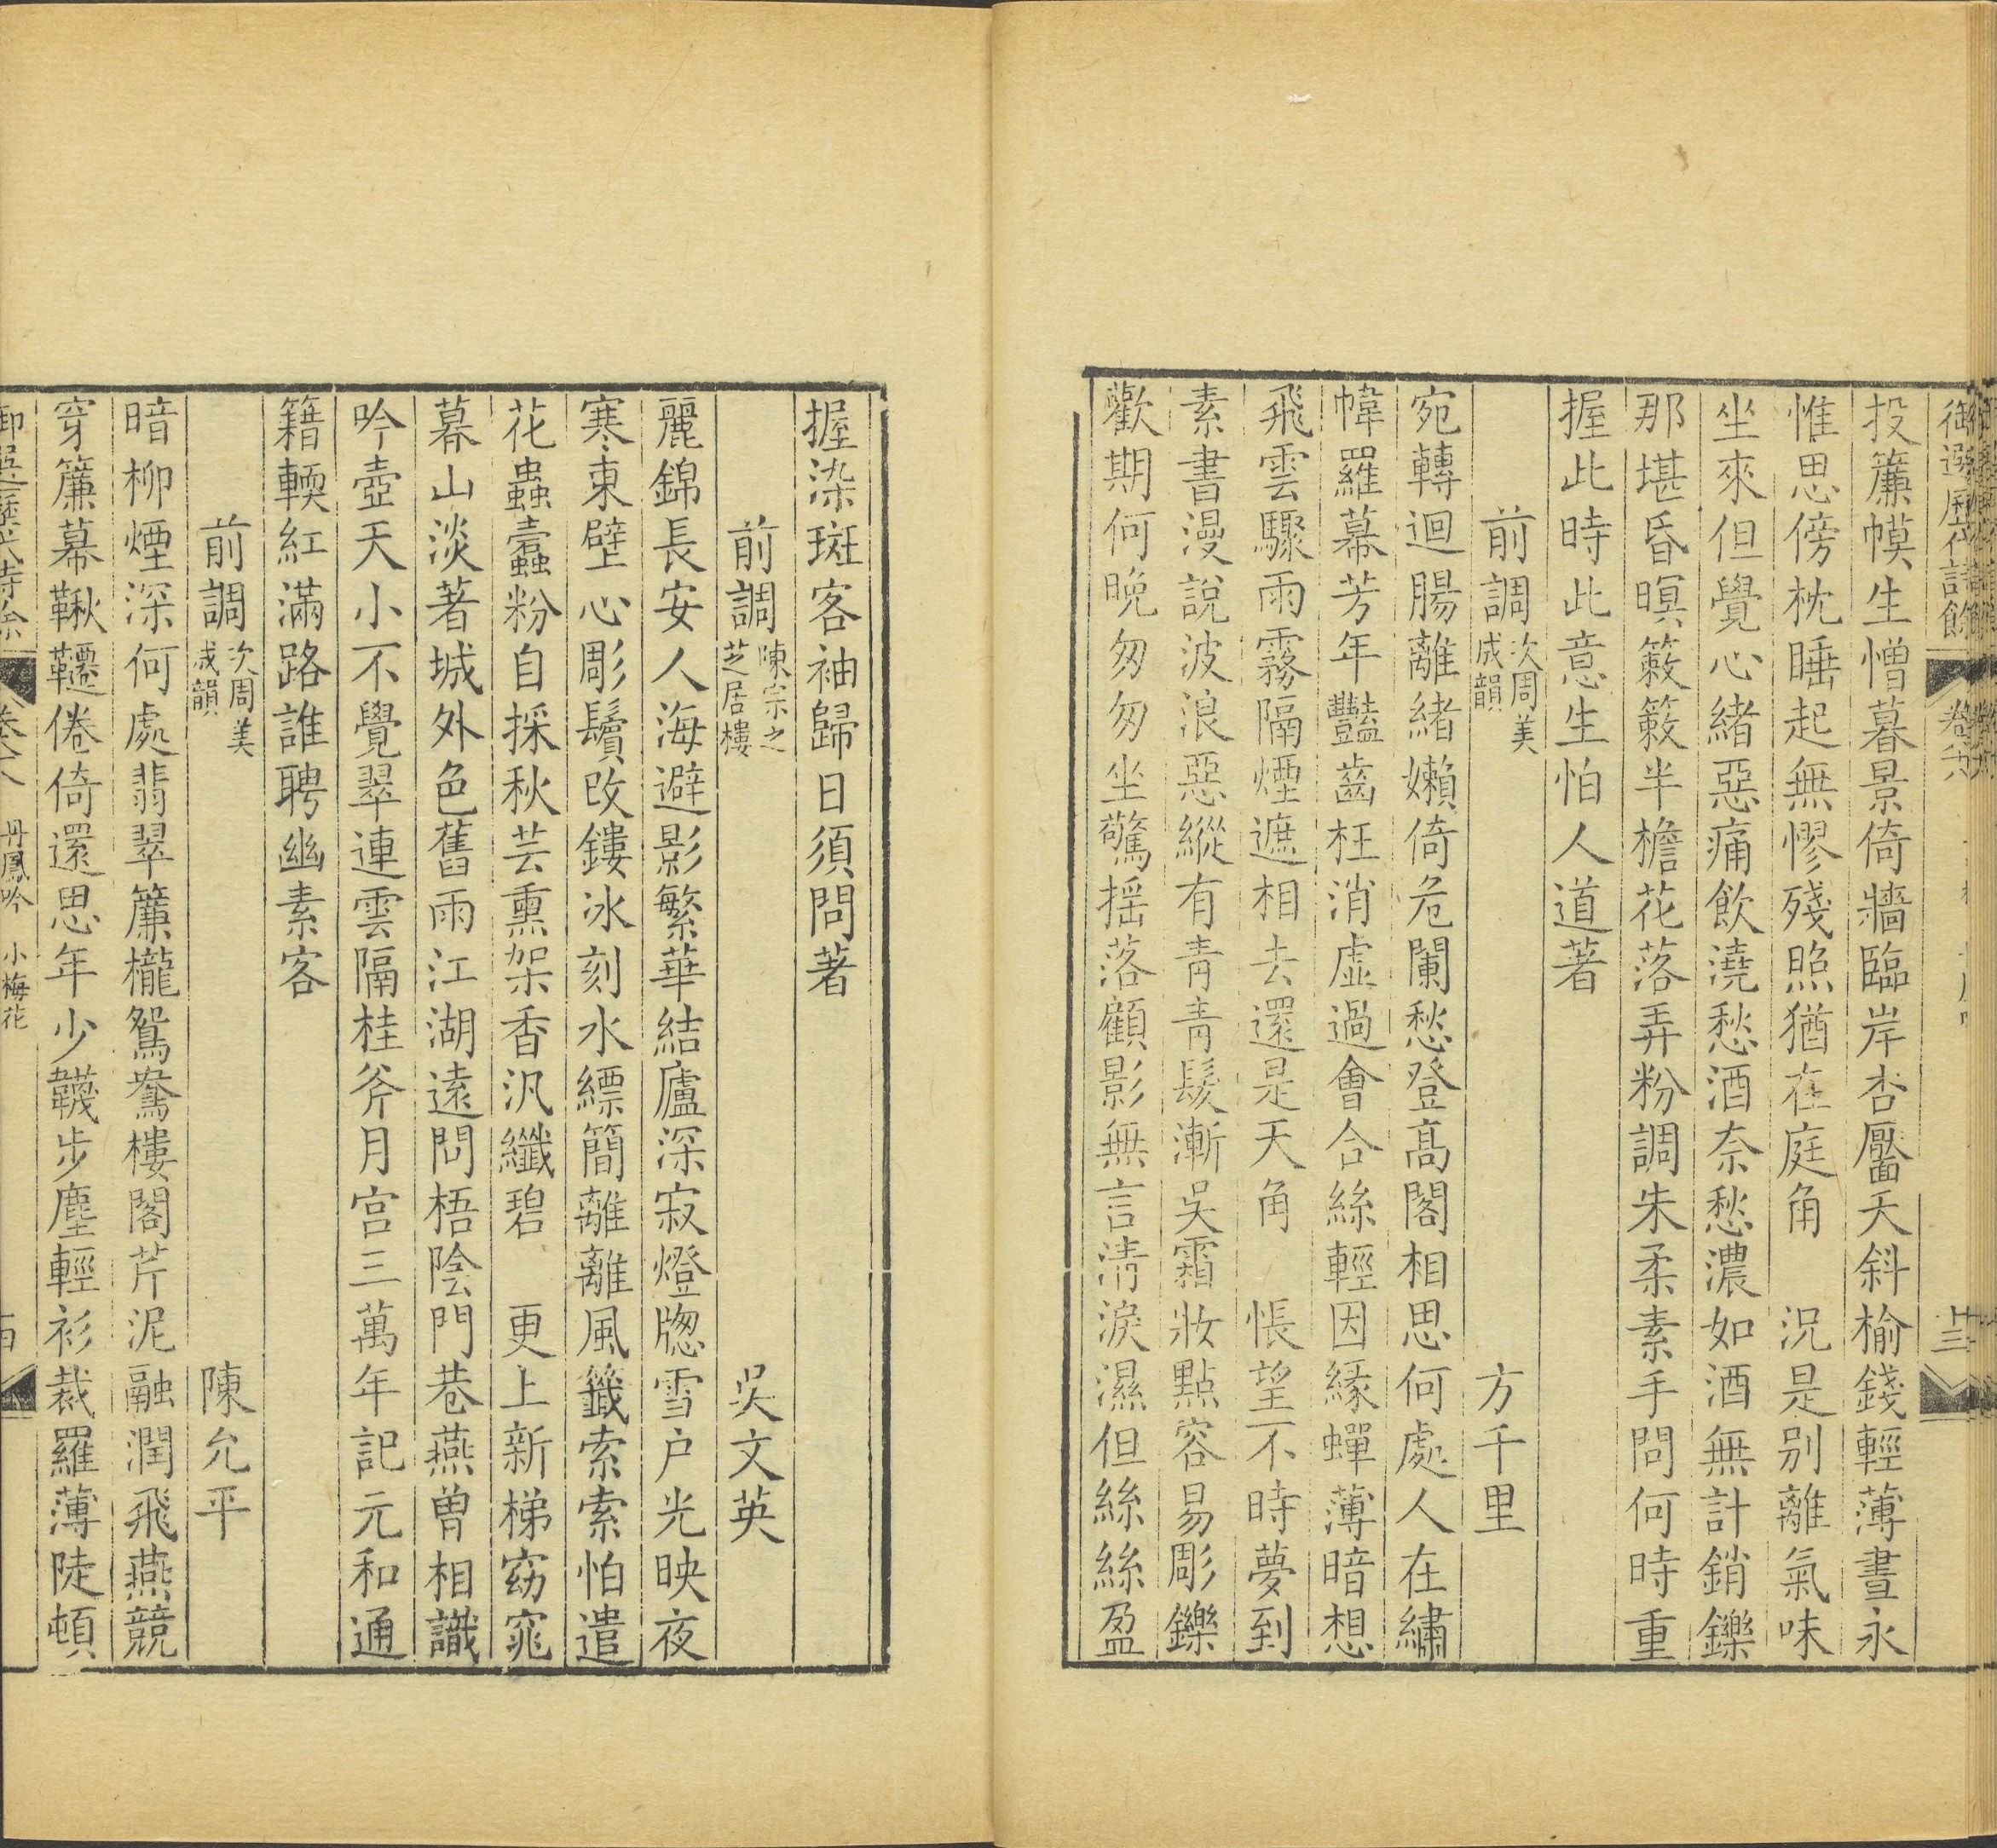 御選歷代詩餘 卷八十八 十三
投簾幙生憎暮景倚牆臨岸杏靨夭斜榆錢輕薄晝永
惟思傍枕睡起無憀殘照猶在庭角 況是别離氣味
坐來但覺心緒惡痛飲澆愁酒奈愁濃如酒無計銷鑠
那堪昏暝簌簌半檐花落弄粉調朱柔素手問何時重
握此時此意生怕人道著
前調 次周美成韻 方千里
宛轉迴腸離緒嬾倚危闌愁登髙閣相思何處人在繡
幃羅幕芳年豔齒枉消虛過會合絲輕因緣蟬薄暗想
飛雲驟雨霧隔煙遮相去還是天角 悵望不時夢到
素書漫說波浪惡縱有青青髮漸吳霜妝點容易彫鑠
歡期何晚匆匆坐驚搖落顧影無言清淚濕但絲絲盈
握染斑客袖歸日須問著
前調 陳宗之芝居樓 吳文英
麗錦長安人海避影繁華結廬深寂燈牎雪户光映夜
寒東壁心彫鬢改鏤冰刻水縹簡離離風籤索索怕遣
花蟲蠹粉自採秋芸熏架香汎纖碧 更上新梯窈窕
暮山淡著城外色舊雨江湖遠問梧陰門巷燕曾相識
吟壺天小不覺翠連雲隔桂斧月宮三萬年記元和通
籍輭紅滿路誰聘幽素客
前調 次周美成韻 陳允平
暗柳煙深何處翡翠簾櫳鴛鴦樓閣芹泥融潤飛燕競
穿簾幕鞦韆倦倚還思年少韈步塵輕衫裁羅薄陡頓
御選歷代詩餘 卷八 丹鳳吟 小梅花